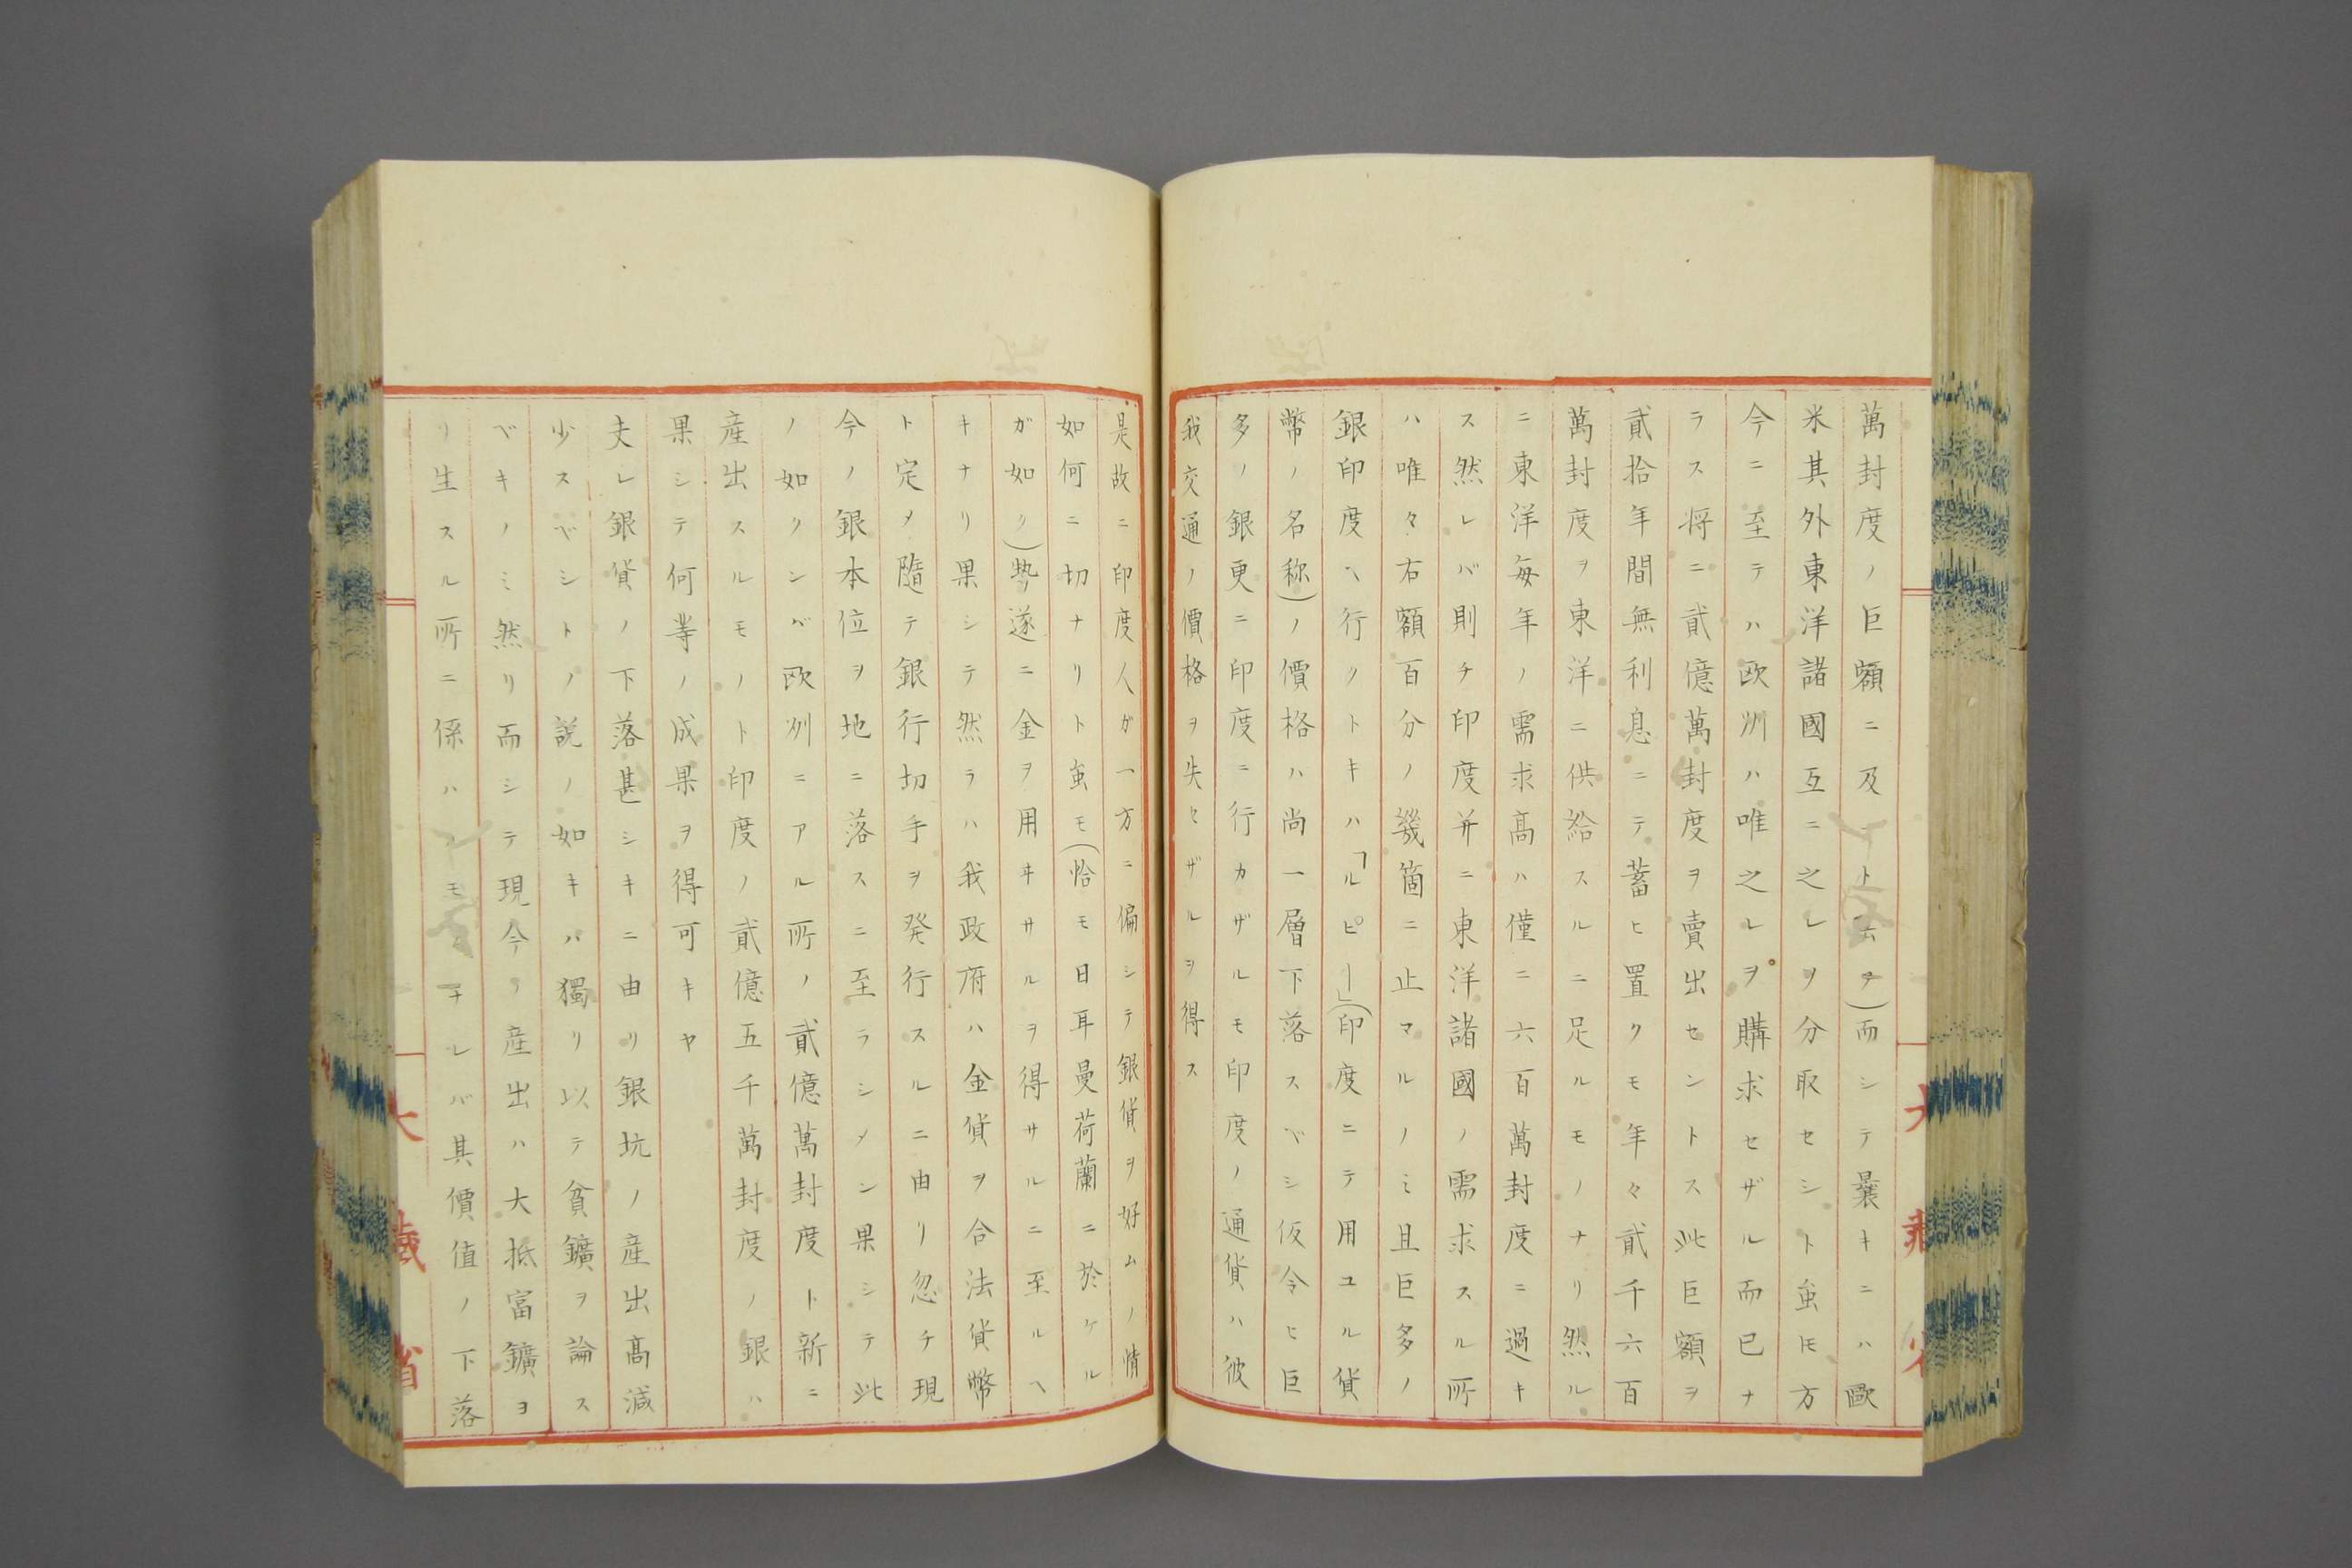 萬封度ノ巨額ニ及トムヲ)而シテ曩キニハ歐
米其外東洋諸國互ニ之レヲ分取セシト虽𪜈方
今ニ至テハ欧洲ハ唯之レヲ購求セザル而已ナ
ラス将ニ貳億萬封度ヲ賣出セントス此巨額ヲ
貳拾年間無利息ニテ蓄ヒ置クモ年々貳千六百
萬封度ヲ東洋ニ供給スルニ足ルモノナリ然ル
ニ東洋每年ノ需求髙ハ僅ニ六百萬封度ニ過キ
ス然レバ則チ印度并ニ東洋諸國ノ需求スル所
ハ唯々右額百分ノ幾箇ニ止マルノミ且巨多ノ
銀印度ヘ行クトキハ「ルピー」(印度ニテ用ユル貨
幣ノ名称)ノ價格ハ尚一層下落スベシ仮令ヒ巨
多ノ銀更ニ印度ニ行カザルモ印度ノ通貨ハ彼
我交通ノ價格ヲ失セザルヲ得ス
是故ニ印度人ガ一方ニ偏シテ銀貨ヲ好ムノ情
如何ニ切ナリト虽モ(恰モ日耳曼荷蘭ニ於ケル
ガ如ク)勢遂ニ金ヲ用ヰサルヲ得サルニ至ルヘ
キナリ果シテ然ラハ我政府ハ金貨ヲ合法貨幣
ト定メ隨テ銀行切手ヲ発行スルニ由リ忽チ現
今ノ銀本位ヲ地ニ落スニ至ラシメン果シテ此
ノ如クンバ欧洲ニアル所ノ貳億萬封度ト新ニ
産出スルモノト印度ノ貳億五千萬封度ノ銀ハ
果シテ何等ノ成果ヲ得可キヤ
夫レ銀貨ノ下落甚シキニ由リ銀坑ノ産出髙減
少スベシトノ説ノ如キハ獨リ以テ貧鑛ヲ論ス
ベキノミ然リ而シテ現今ノ産出ハ大抵富鑛ヨ
リ生スル所ニ係ハモナレバ其價值ノ下落
大藏省
大藏省